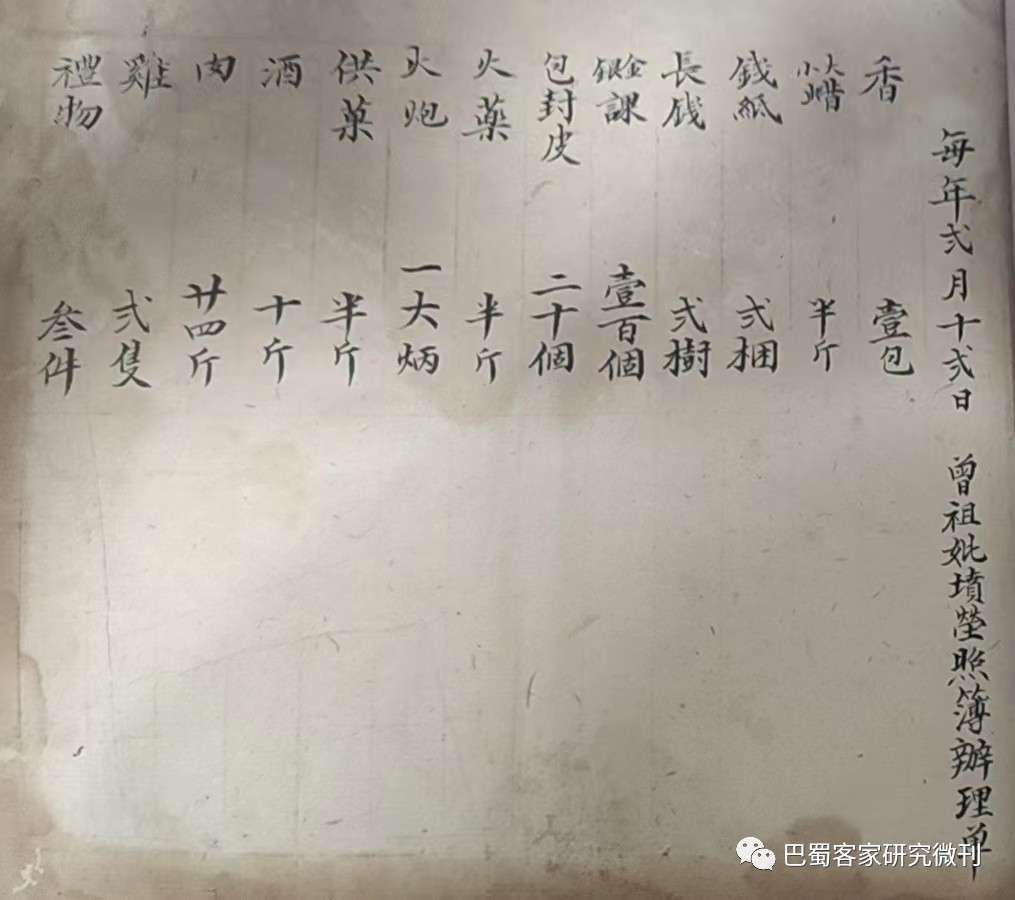 每年弍月十弍日 曾祖妣墳塋照簿辦理单
香 壹包
大小蜡 半斤
錢紙 弍捆
長錢 弍樹
金銀課 壹百個
包封皮 二十個
火藥 半斤
火炮 一大炳
供菓 半斤
酒 十斤
肉 廿四斤
雞 弍隻
禮物 叁件
巴蜀客家研究微刊